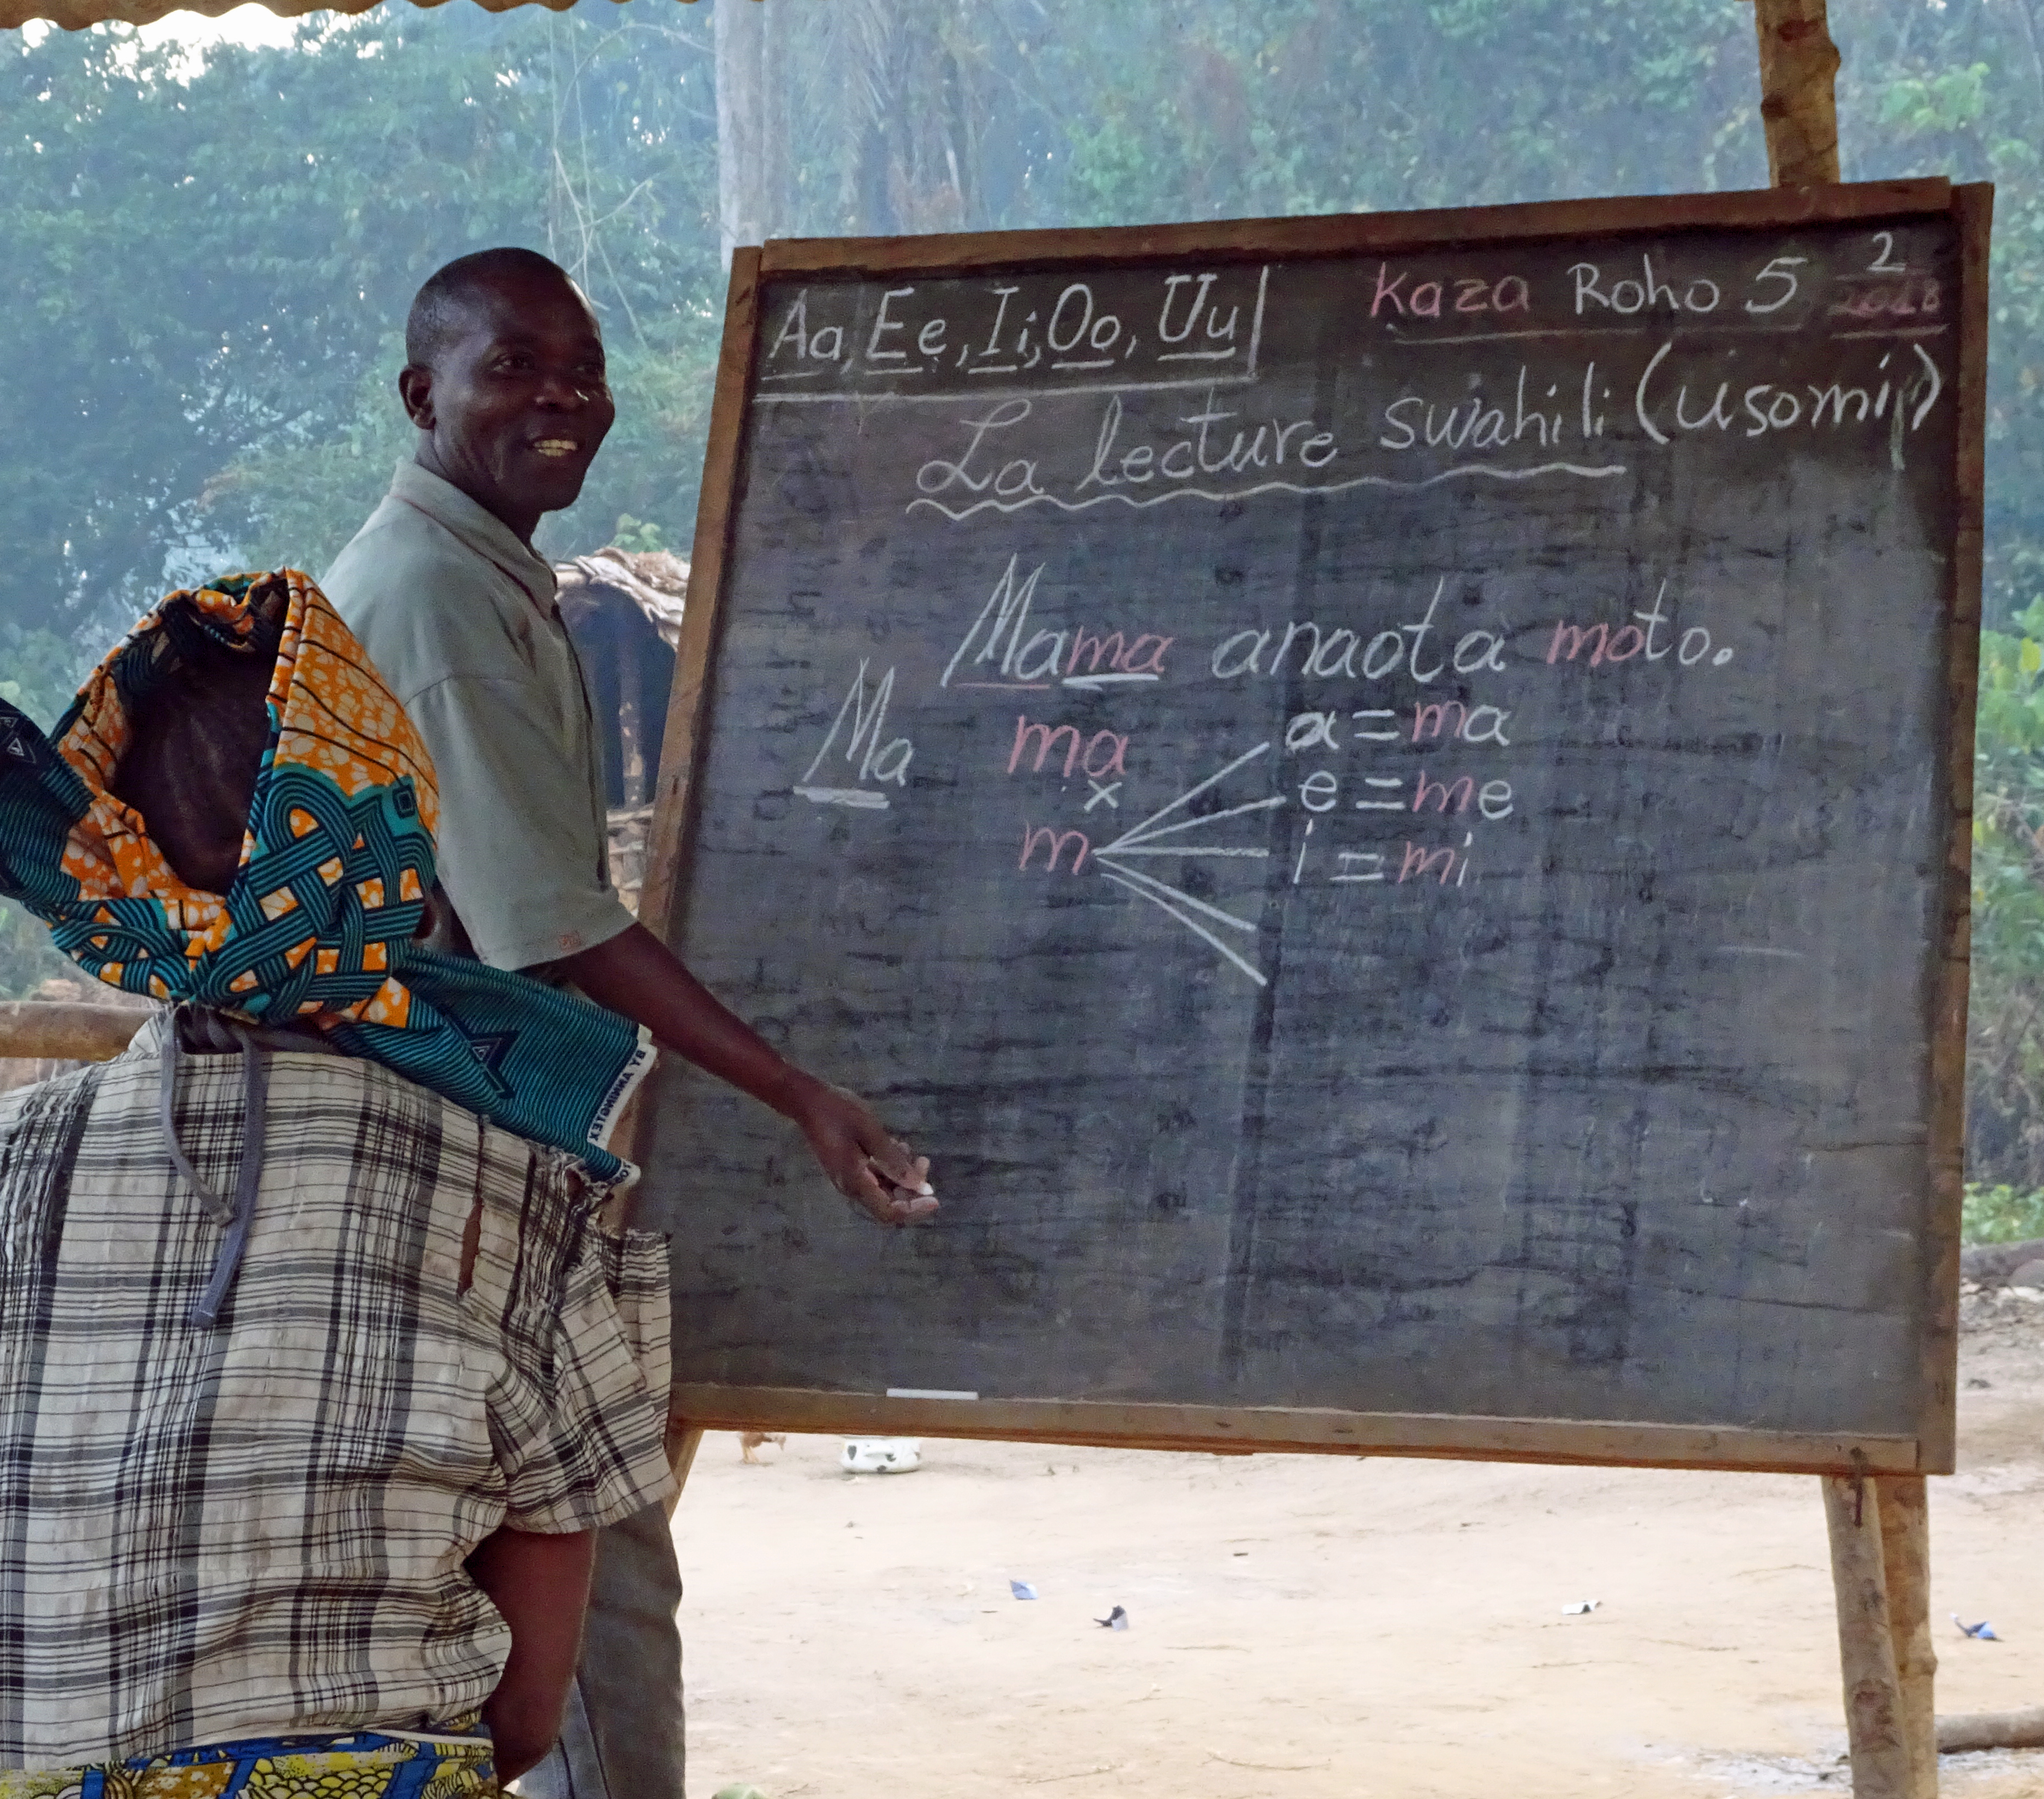 Aa, Ee, Ii, Oo, Uu
Kaza Roho 5 2
2018
La lecture swahili (usomi)
Mama anaota moto.
Ma ma a = ma
x e = me
m i = mi
BY ANNINGTEX